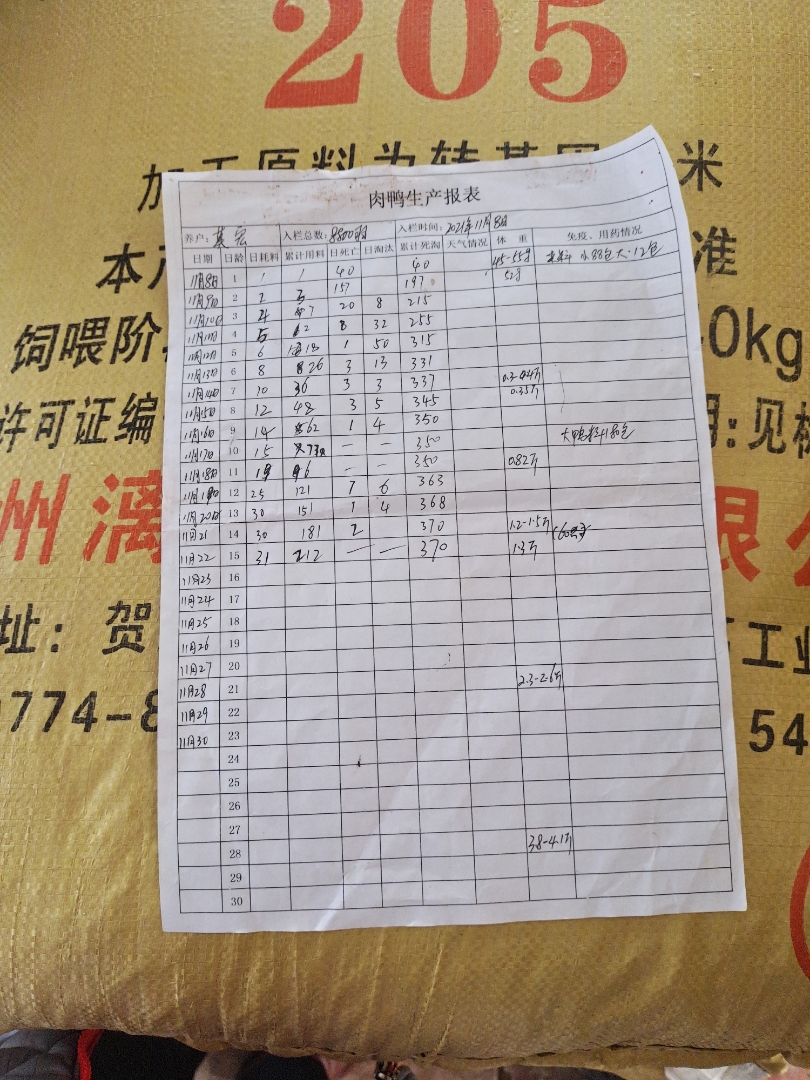 205
加工原料为转基因 米
肉鸭生产报表
本 准
饲喂阶 0kg
许可证编 明:见标
州漓 限公
址: 贺 工业
0774-8 54
养户: 宏 入栏总数: 8800羽 入栏时间: 2021年11月8日
日期 日龄 日耗料 累计用料 日死亡 日淘汰 累计死淘 天气情况 体 重 免疫、用药情况
11月8日 1 1 1 40 40 45-55g 小88包 大·12包
11月9日 2 2 3 157 197 52g
11月10日 3 4 7 20 8 215
11月11日 4 5 12 8 32 255
11月12日 5 6 18 1 50 315
11月13日 6 8 26 3 13 331
11月14日 7 10 36 3 3 337 0.3-0.4斤
11月15日 8 12 48 3 5 345 0.35斤
11月16日 9 14 62 1 4 350
11月17日 10 15 77 — — 350 大鸭料180包
11月18日 11 19 96 — — 350 0.82斤
11月19日 12 25 121 7 6 363
11月20日 13 30 151 1 4 368
11月21 14 30 181 2 370 1.2-1.5斤
11月22 15 31 212 — — 370 1.3斤
11月23 16
11月24 17
11月25 18
11月26 19
11月27 20
11月28 21 2.3-2.6斤
11月29 22
11月30 23
24
25
26
27
28 3.8-4.1斤
29
30